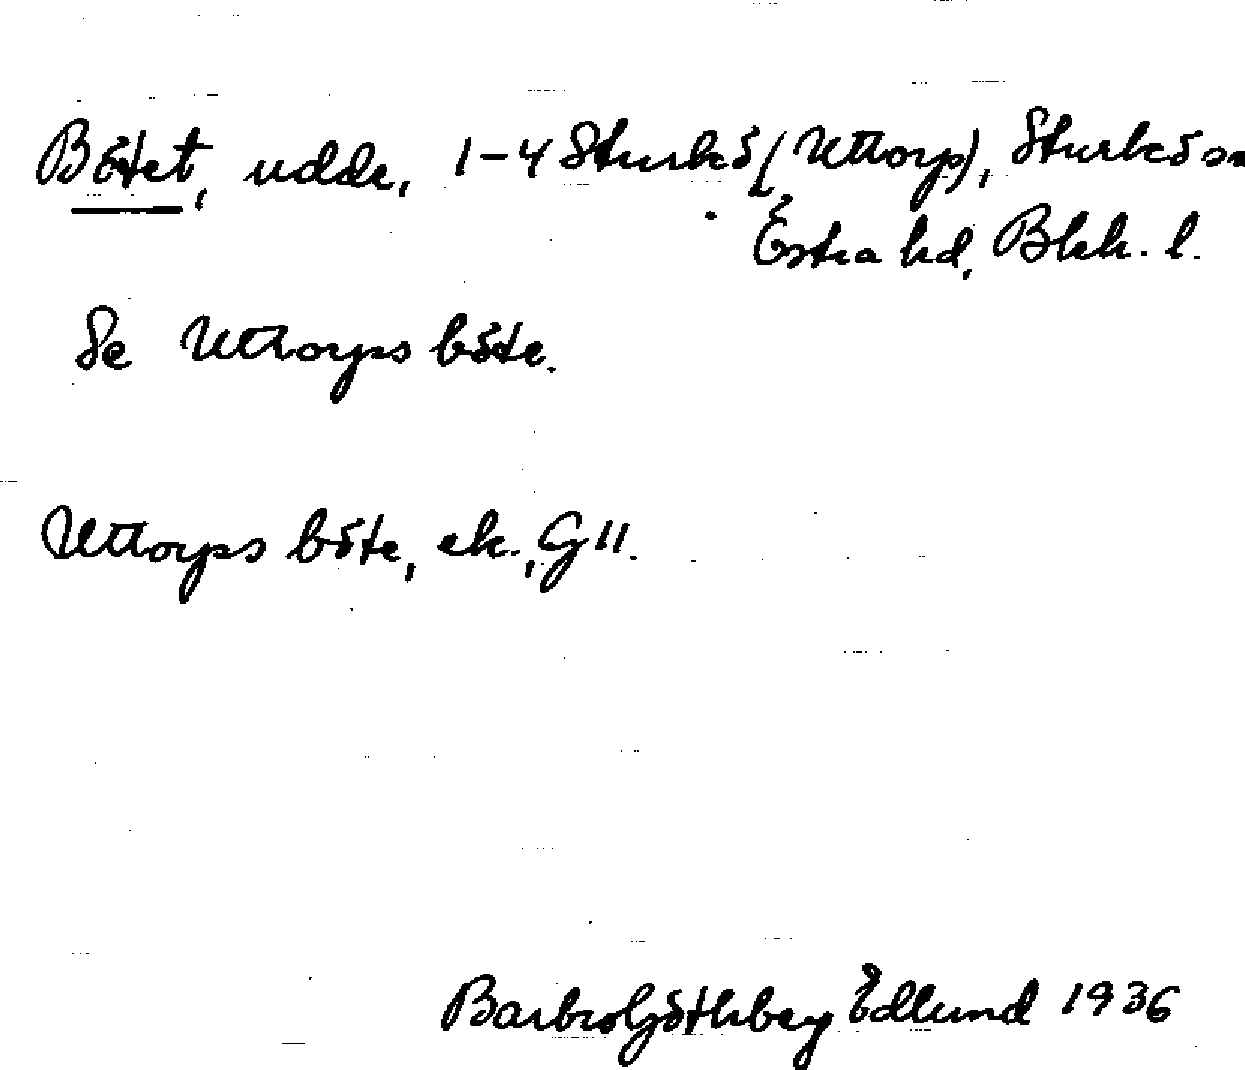 Bötet, udde, 1-4 Sturkö (Uttorp), Sturkö sn
Östra hd, Blek. l.
Se Uttorps böte.
Uttorps böte, ek., G 11.
Barbro Göthberg Edlund 1936